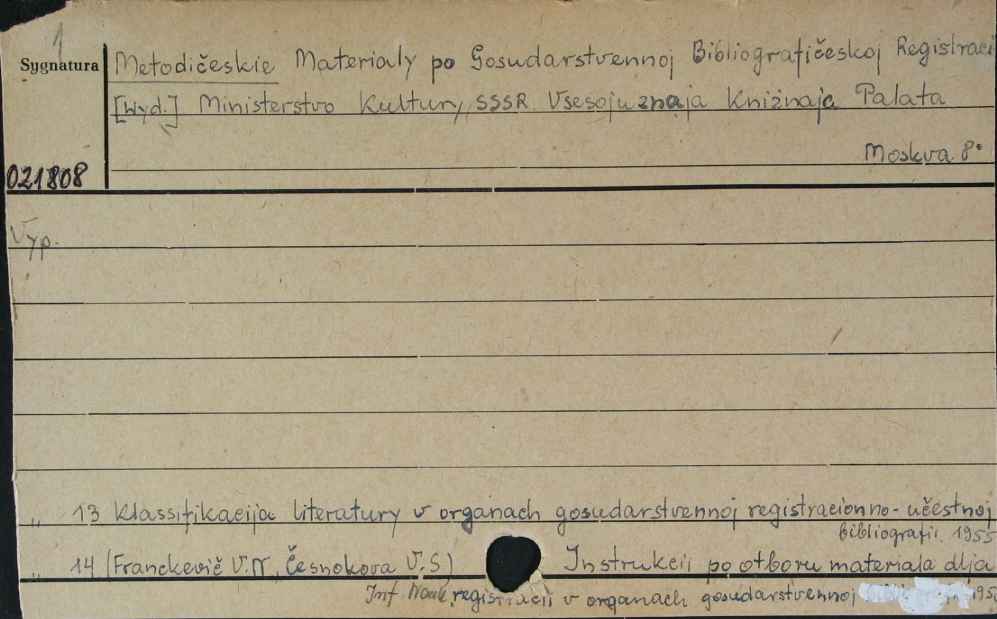 1
Sygnatura
Metodičeskie Materialy po Gosudarstvennoj Bibliografičeskoj Registraci
[Wyd.] Ministerstvo Kultury, SSSR Vsesojuznaja Knižnaja Palata
Moskva 8°
021808
Vyp.
„ 13 Klassifikacija literatury v organach gosudarstvennoj registracionno-učestnoj
bibliografii. 1955
„ 14 (Franckevič V.N., Česnokova V.S) Instrukcii po otboru materiala dlja
Inf. Nauk. registracii v organach gosudarstvennoj